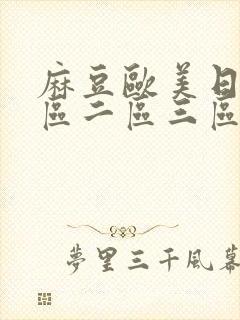 麻豆歐美日
區二區三區
夢里三千風幕